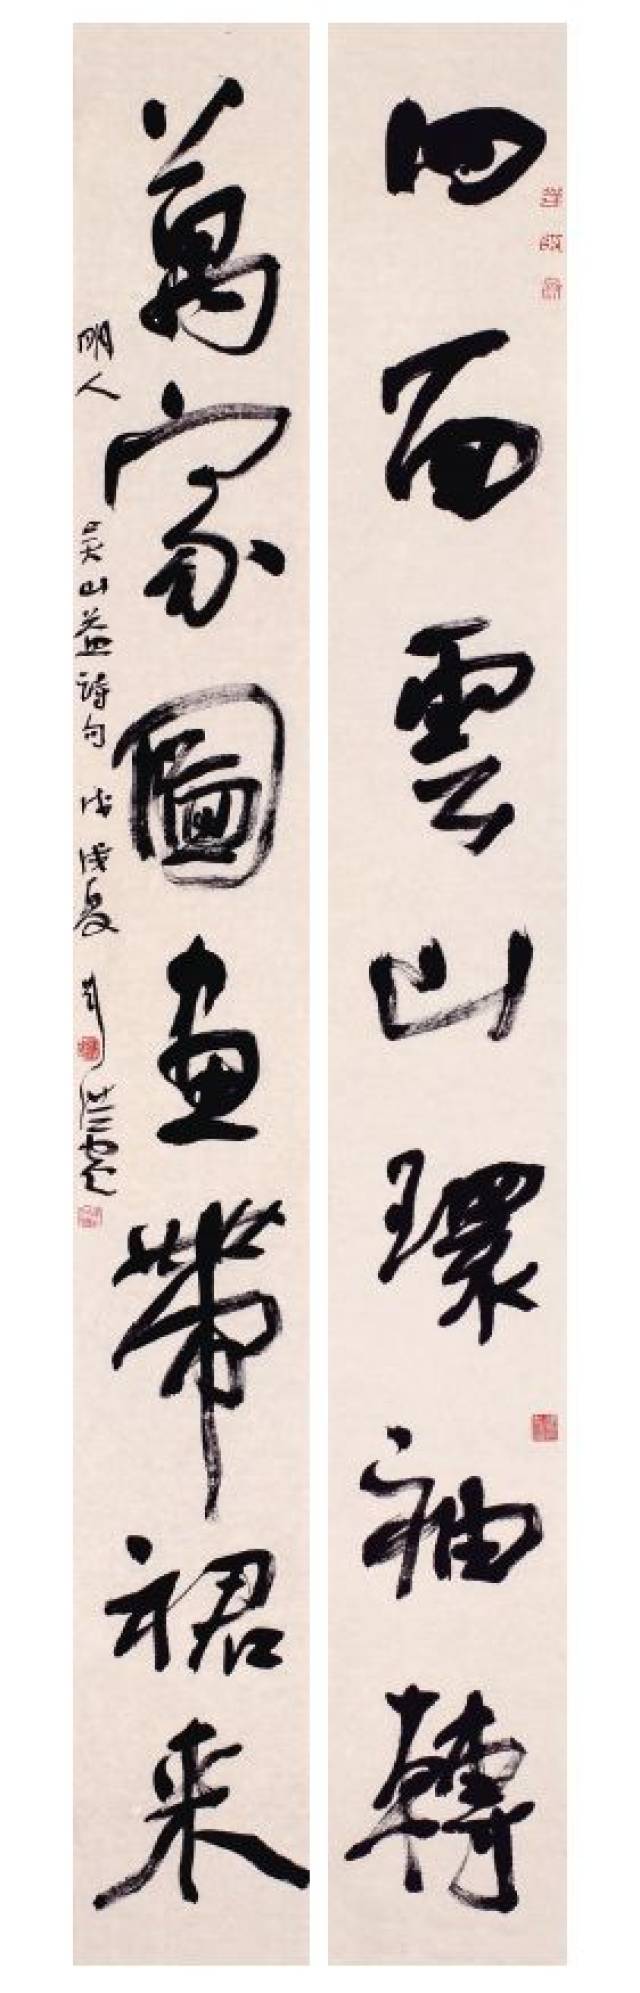 四面雲山環袖轉
萬家圖畫帶裙来
明人吴山益詩句戊戌夏劉洪彪